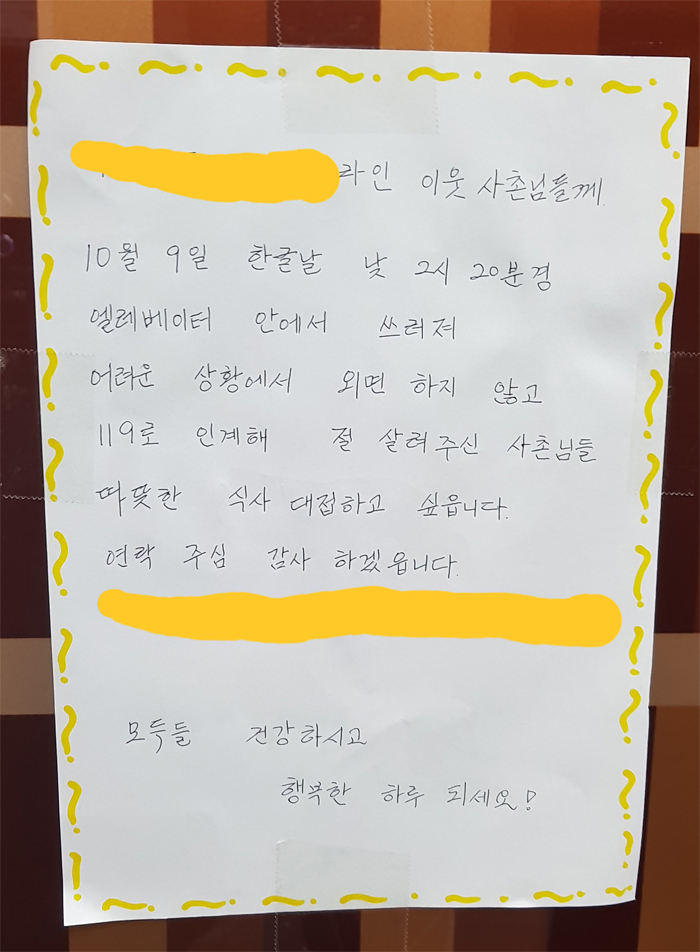 라인 이웃사촌님들께
10월 9일 한글날 낮 2시 20분경
엘레베이터 안에서 쓰러져
어려운 상황에서 외면 하지 않고
119로 인계해 절 살려주신 사촌님들
따뜻한 식사 대접하고 싶읍니다.
연락 주심 감사 하겠읍니다.
모두들 건강하시고
행복한 하루 되세요!